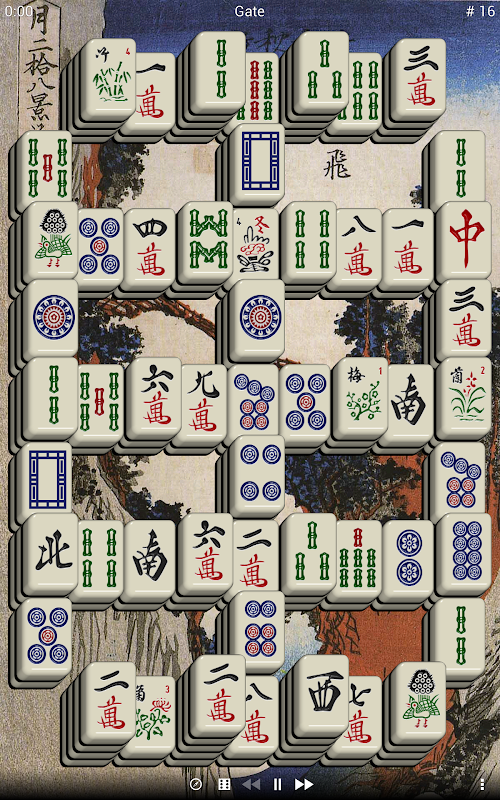 0:00 Gate # 16
月二拾八景
飛
竹 4 一萬 三萬
4 冬
四萬 八萬 一萬 中
三萬
六萬 九萬 梅 1 南 2
北 南 六萬 二萬
二萬 3 二萬 八萬 西 七萬